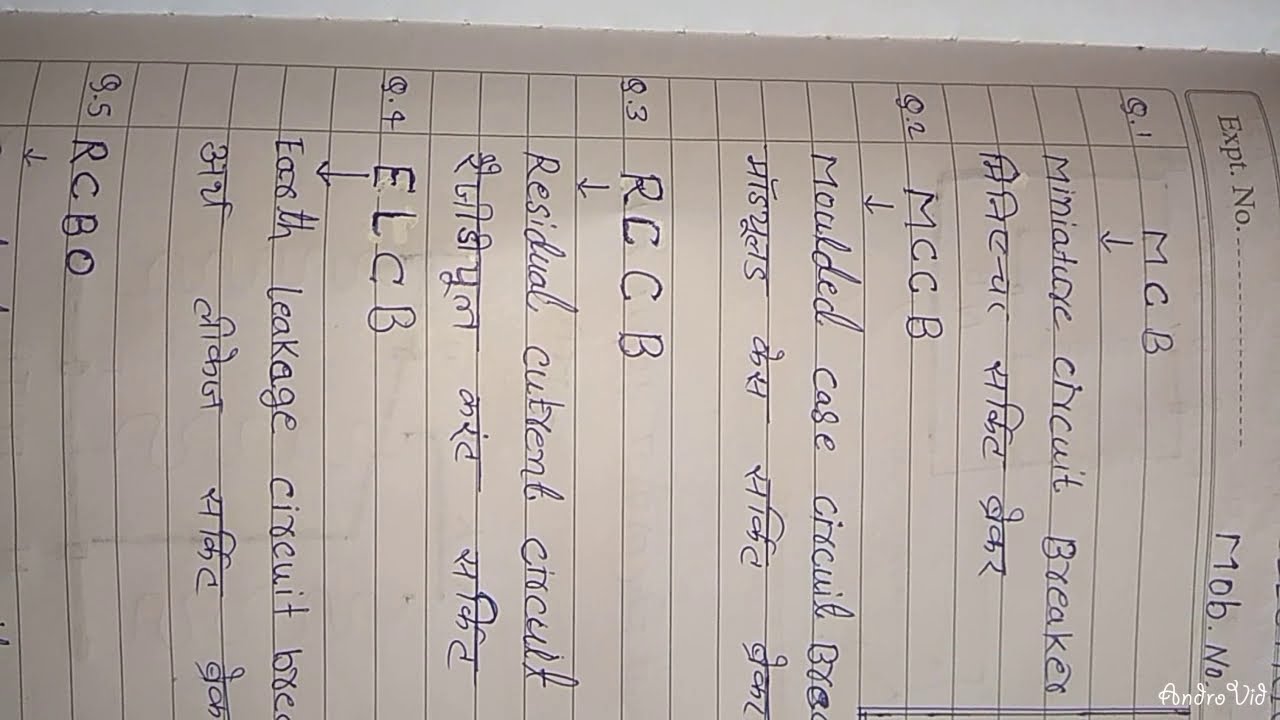 Expt. No.
Mob. No.
Q.1 MCB
↓
Miniature circuit Breaker
मिनिएचर सर्किट ब्रेकर
Q.2 MCCB
↓
Moulded case circuit
मॉडयूलड केस सर्किट ब्रेकर
Q.3 RCCB
↓
Residual current circuit
रेजीडियूल करंट सर्किट
Q.4 ELCB
↓
Earth leakage circuit
अर्थ लीकेज सर्किट
Q.5 RCBO
↓
AndroVid